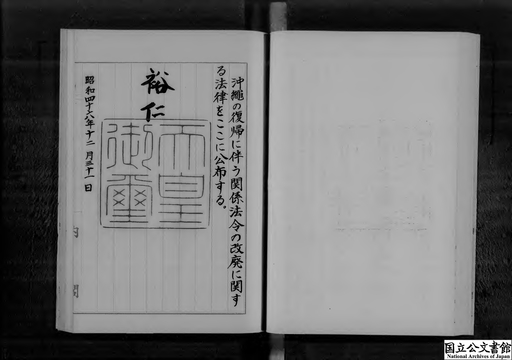 沖縄の復帰に伴う関係法令の改廃に関す
る法律をここに公布する。
裕仁
天皇
御璽
昭和四十六年十二月三十一日
内閣
国立公文書館
National Archives of Japan